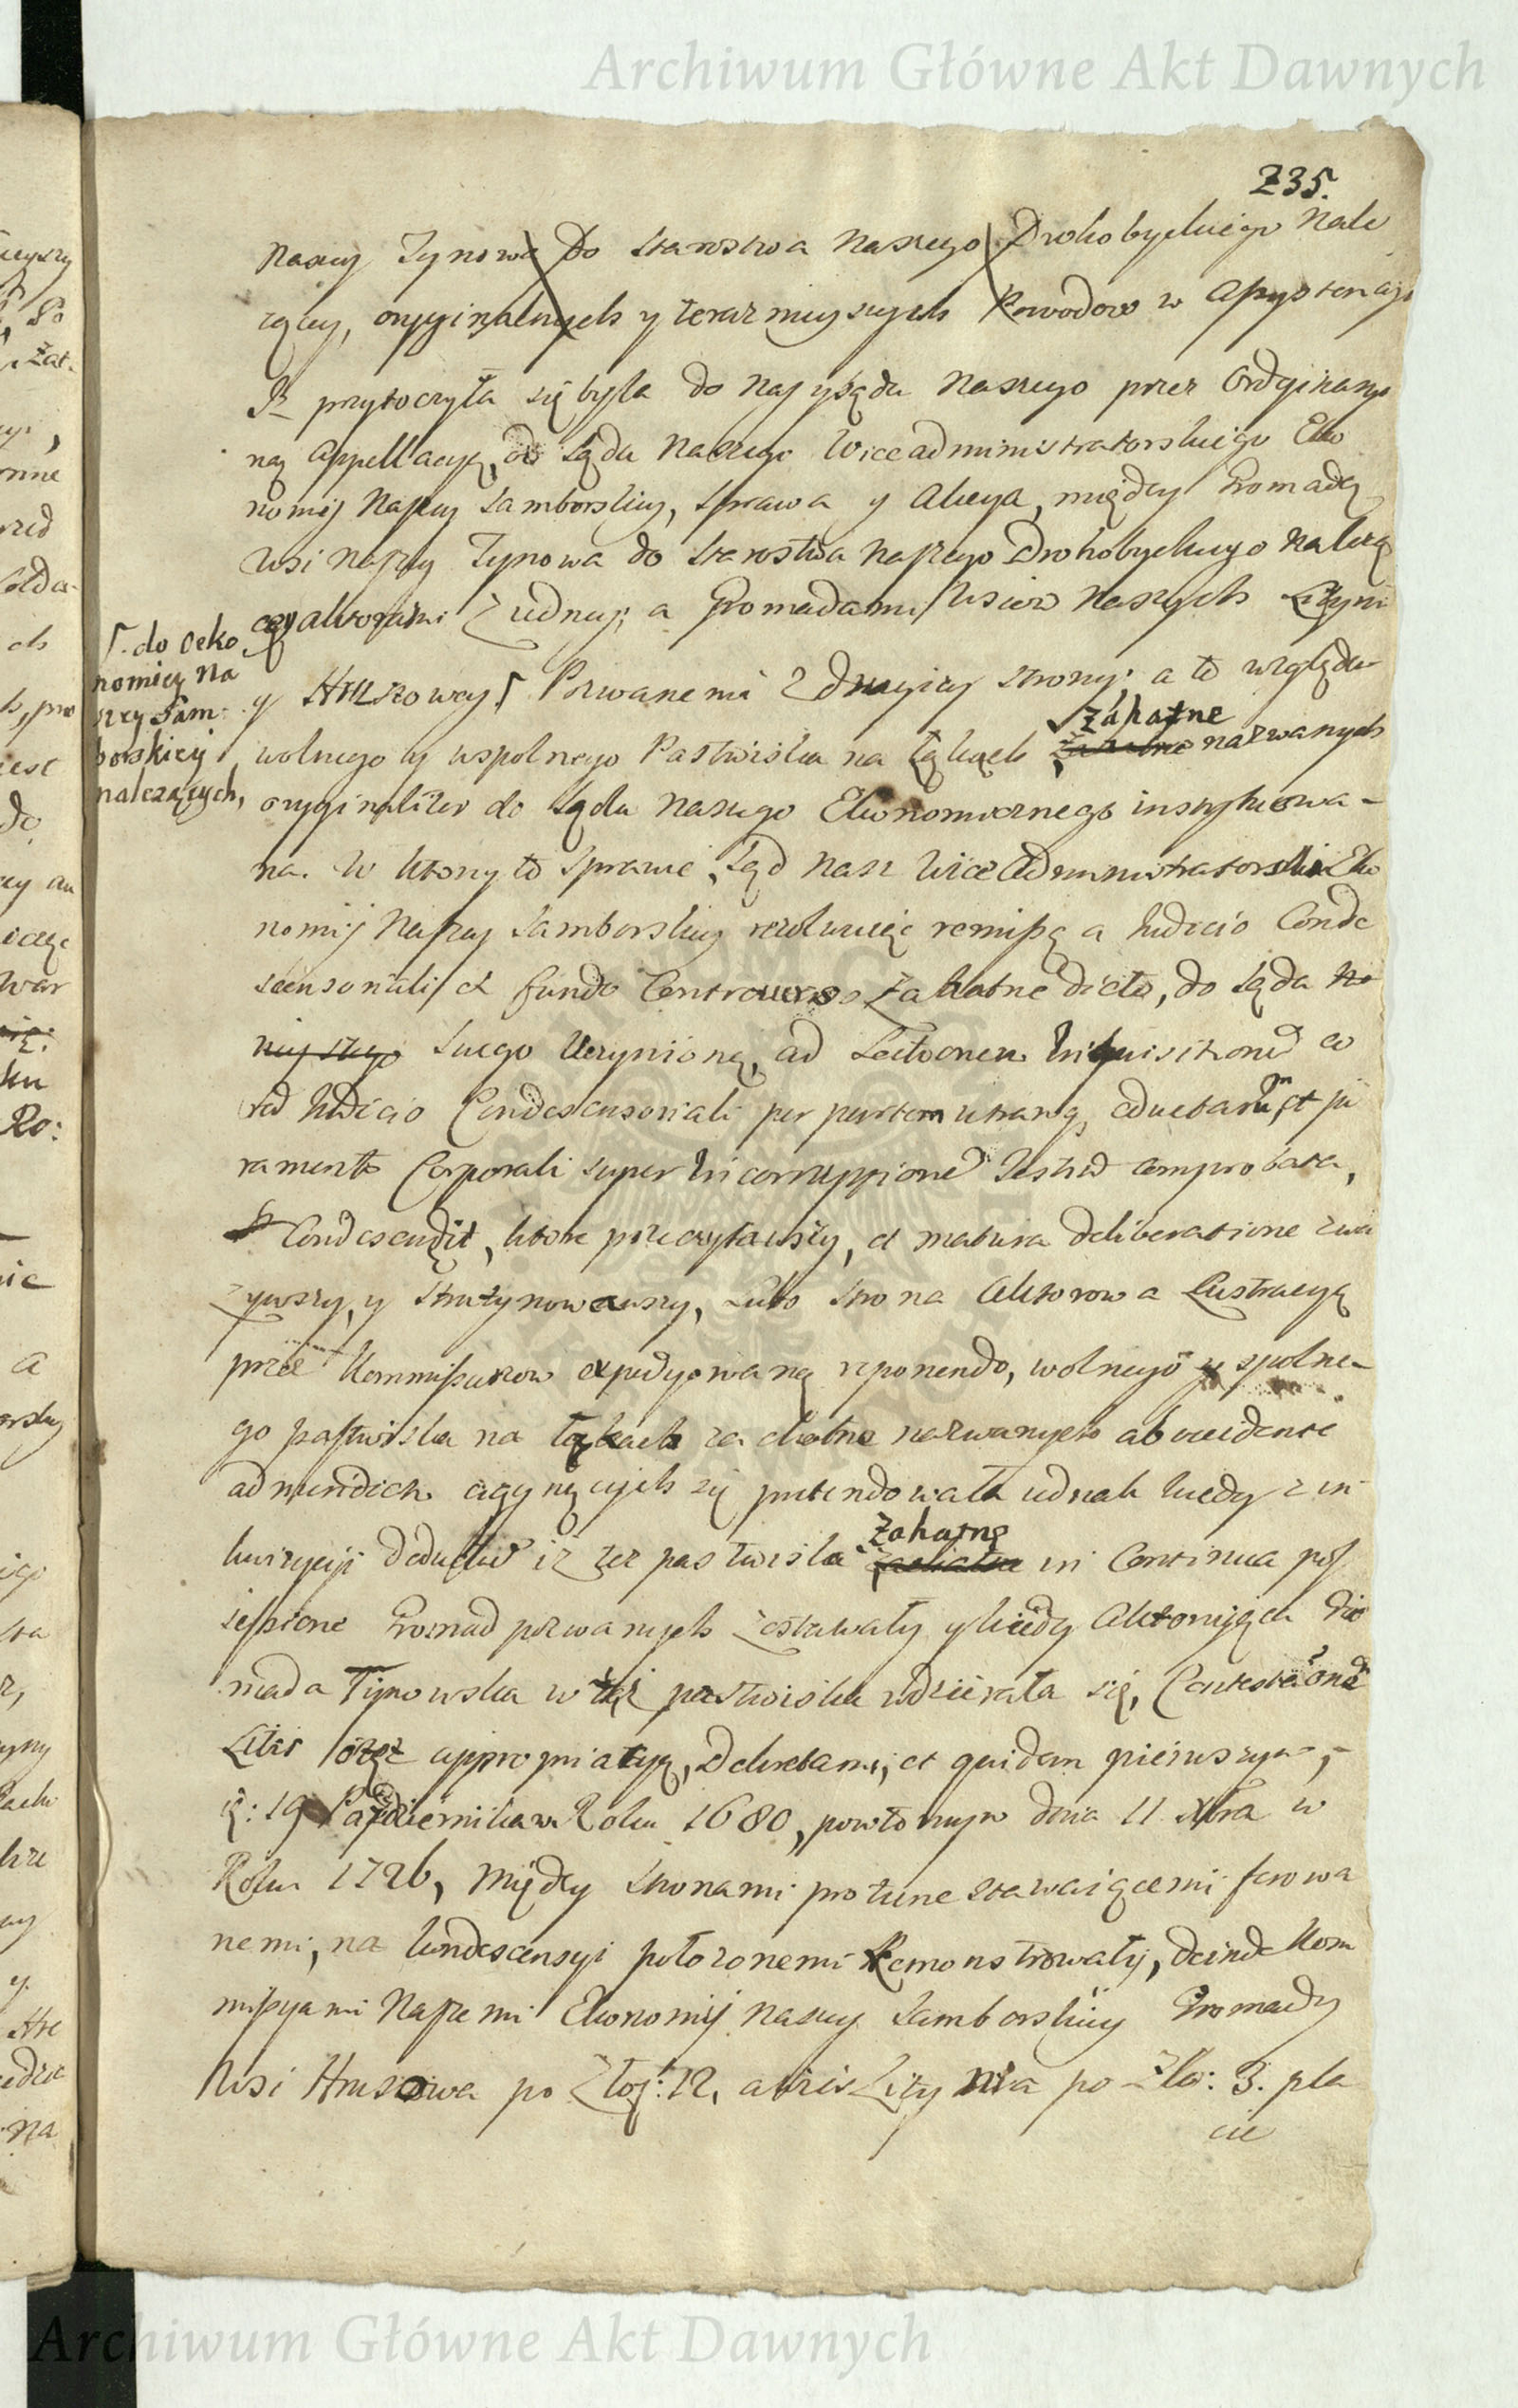 Archiwum Główne Akt Dawnych
235.
Naszej Tynowa Do Starostwa Naszego Drohobyckiego Nale
żącey, oryginalnych y teraznieyszych Powodow w Appellacyi
przytoczyła się była do Naszego Sądu Naszego przez
ną Appellacyą, od Sądu Naszego Wiceadministratorskiego Eko
nomij Naszey Samborskiey, sprawa y Akcya, między Gromadą
Wsi Naszey Tynowa do Starostwa Naszego Drohobyckiego Należą
cą aktorami z iedney; a Gromadami Wsiow Naszych Lityni
y Hruszowey Pozwanemi z drugiey strony; a to względem
ſ. do Oeko
nomiey Na
szey Sam:
borskiey
należących,
Zahatne
wolnego y wspolnego Pastwiska na łąkach nazwanych
oryginaliter do Sądu Naszego Ekonomicznego instytuowa-
na. W ktorey to sprawie, Sąd Nasz Wice Administratorski Eko
nomij Naszey Samborskiey rezolucyę remissą a Judicio Conde
scensoriali et fundo Controverso Zahatne dicto, do Sądu Na
nieyszego Swego Uczynioną, ad Lectionem Inquisitionū co
rad Judicio Condescensoriali per partem utramq, eductarum, et ju
ramento Corporali super Incorruptione Testiū comprobata,
Condescendit, ktore przeczytawszy, et matura deliberatione zwa
żywszy, y Strutynowawszy, Lubo Strona Aktorowa Lustracyą
przez Kommissarzow expedyowaną reponendo, wolnego y spolne-
go pastwiska na łąkach zachatne nazwanych ab occidente
ad meridiem ciągnących się pretendowała iednak kiedy z in
Zahatne
kwizycyi deductū iż też pastwiska in Continua pos
sessione Gromad pozwanych zostawały y kiedy Aktoruiąca Gro
mada Tynowska w też pastwiska wdzierała się, Contestationē
Litis appropriatyą, Dekretami, et quidem pierwszym,
d: 19 Października w Roku 1680, powtornym dnia 11 Xbra w
Roku 1726, między stronami pro tunc stawaiącemi ferowa
nemi, na kondescensyi położonemi Remonstrowały, deinde Kom
missyami Naszemi Ekonomij naszey Samborskiey Gromady
Wsi Hruszowa po Złot: 12, a Wsi Litynia po Zło: 3. pła
cie
Archiwum Główne Akt Dawnych